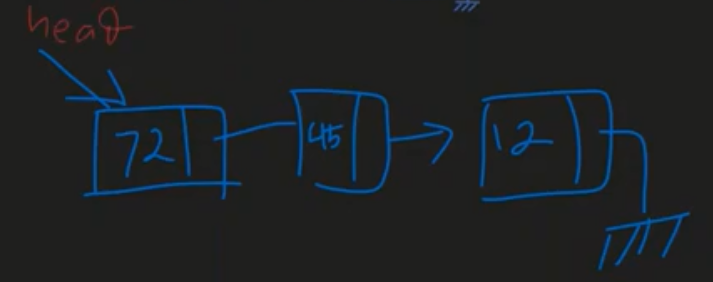 head
72 45 12